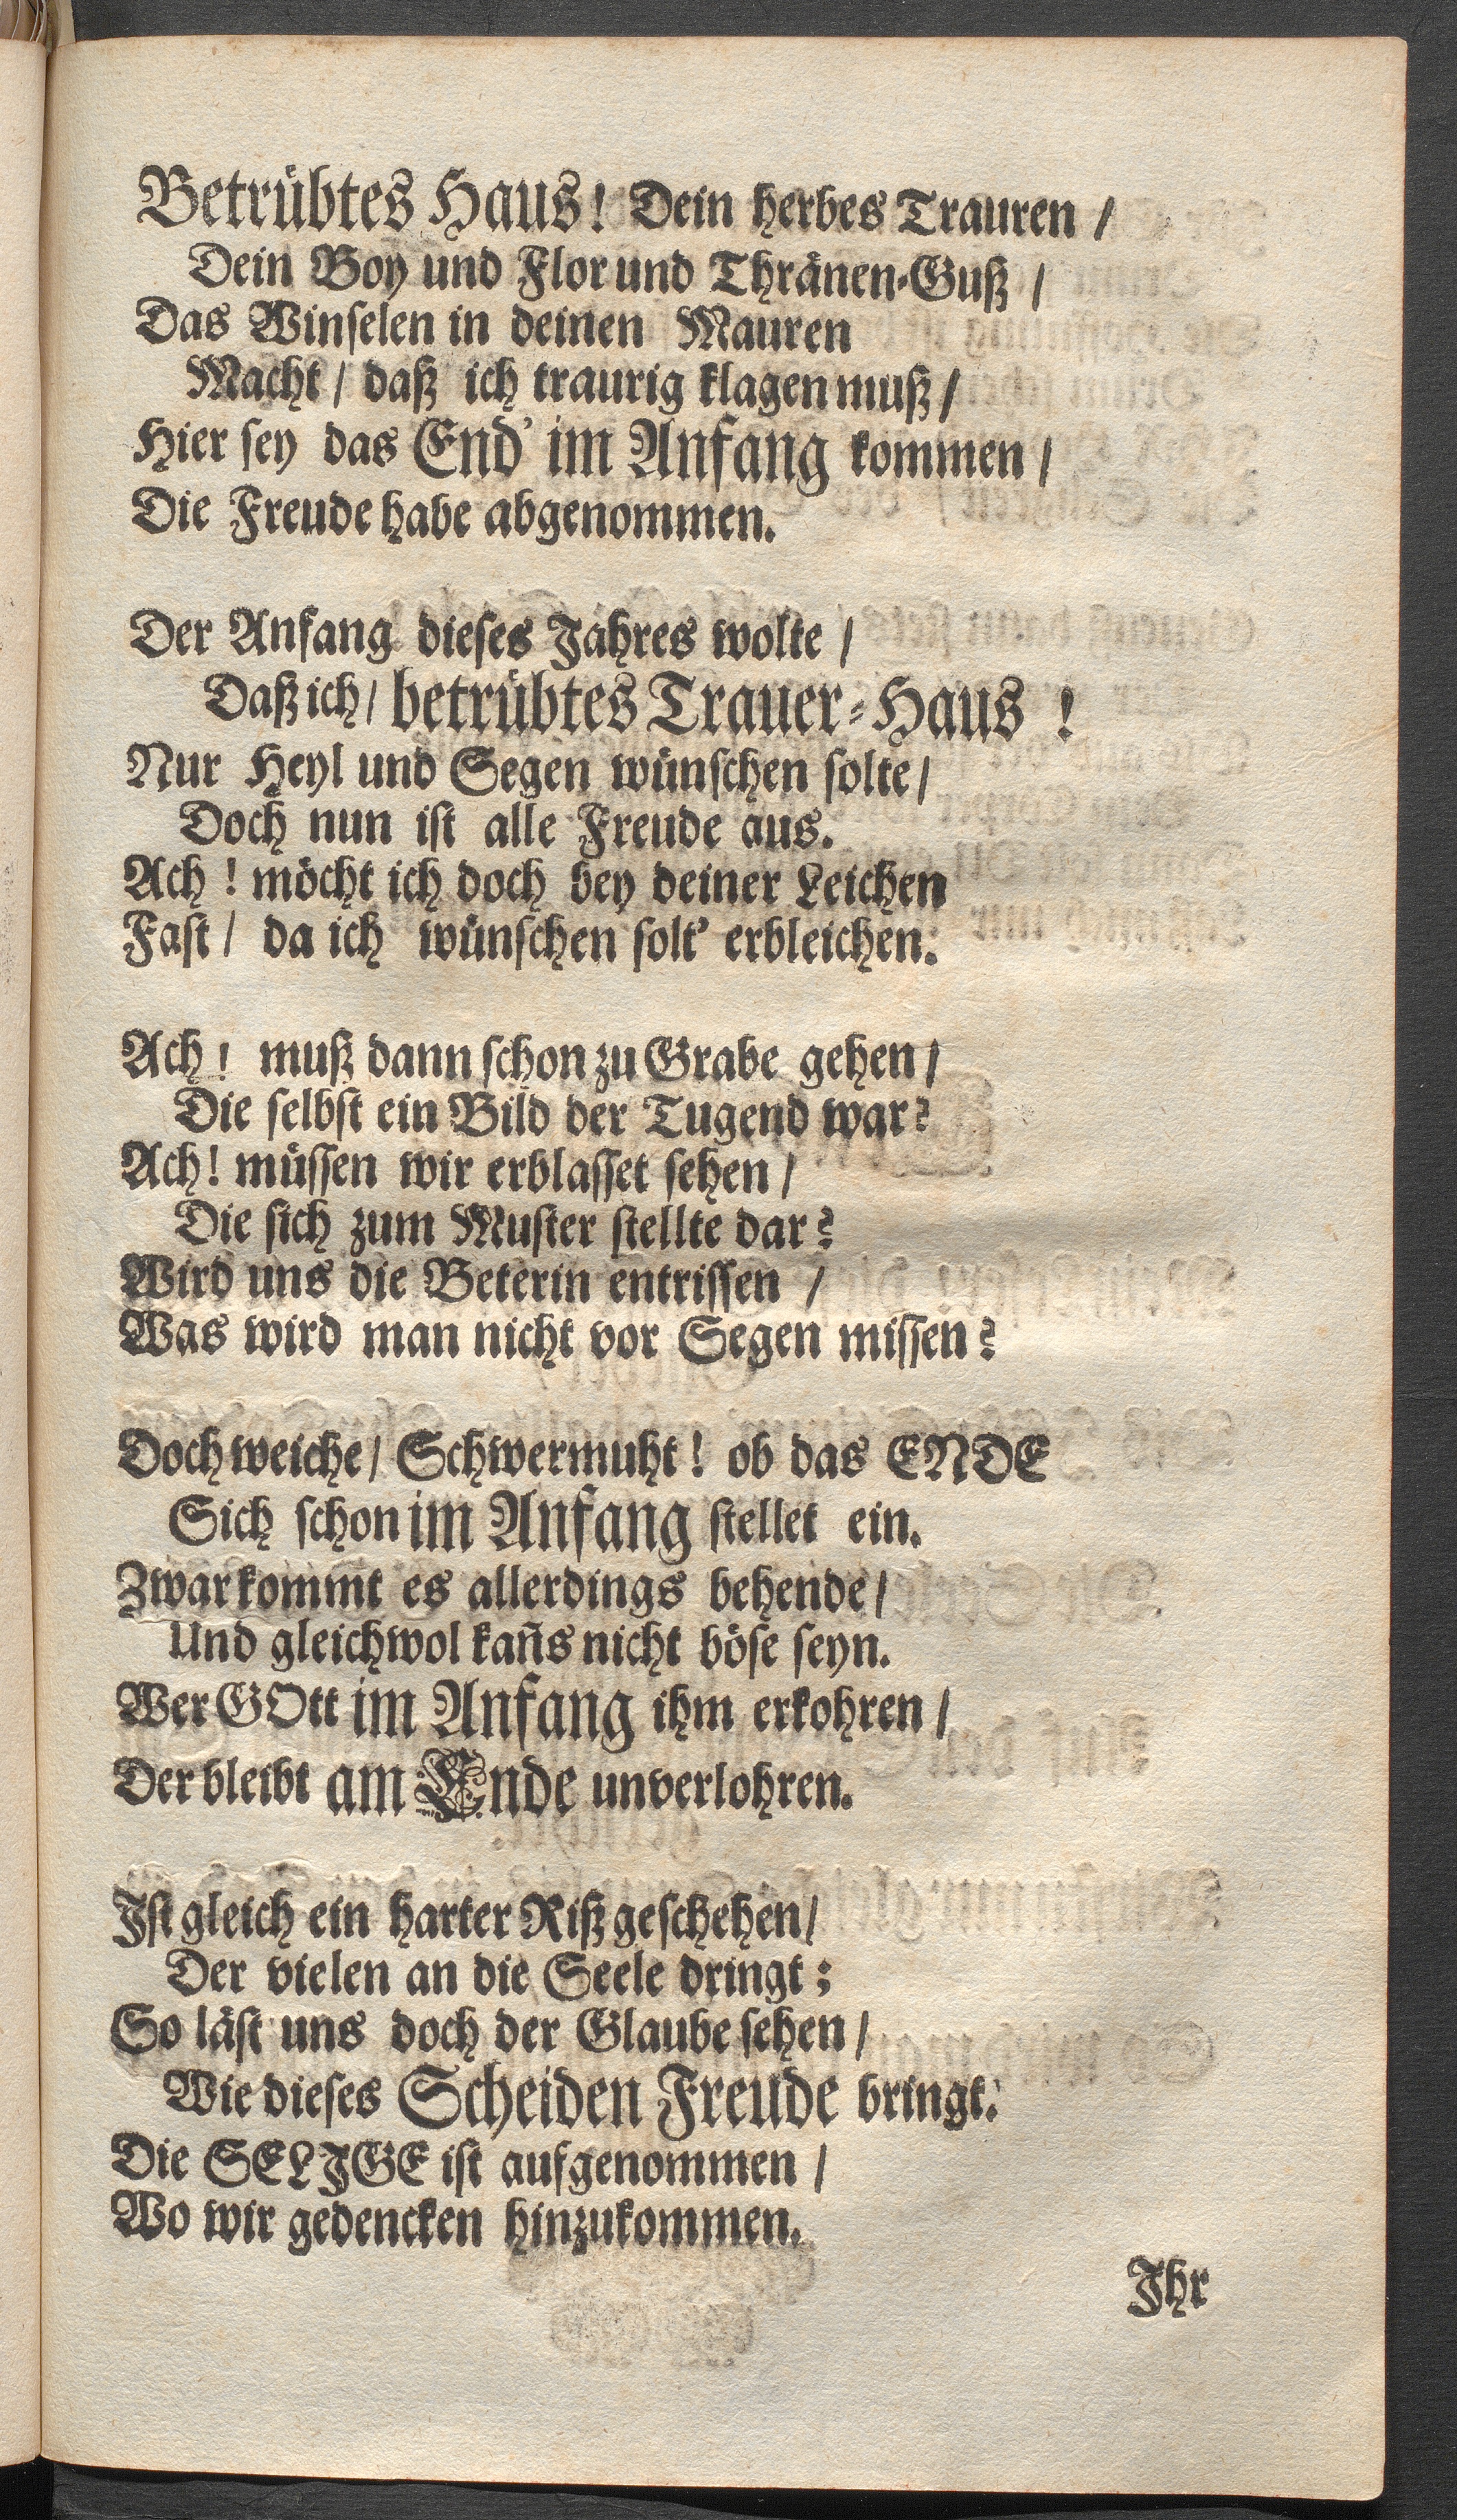 Betrübtes Haus! Dein herbes Trauren /
Dein Boy und Flor und Thränen-Guß /
Das Winselen in deinen Mauren
Macht / daß ich traurig klagen muß /
Hier sey das End' im Anfang kommen /
Die Freude habe abgenommen.
Der Anfang dieses Jahres wolte /
Daß ich / betrübtes Trauer-Haus !
Nur Heyl und Segen wünschen solte /
Doch nun ist alle Freude aus.
Ach ! möcht ich doch bey deiner Leichen
Fast / da ich wünschen solt' erbleichen.
Ach ! muß dann schon zu Grabe gehen /
Die selbst ein Bild der Tugend war?
Ach! müssen wir erblasset sehen /
Die sich zum Muster stellte dar?
Wird uns die Beterin entrissen /
Was wird man nicht vor Segen missen?
Doch weiche / Schwermuht ! ob das ENDE
Sich schon im Anfang stellet ein.
Zwar kommt es allerdings behende /
Und gleichwol kañs nicht böse seyn.
Wer GOtt im Anfang ihm erkohren /
Der bleibt am Ende unverlohren.
Ist gleich ein harter Riß geschehen /
Der vielen an die Seele dringt ;
So läst uns doch der Glaube sehen /
Wie dieses Scheiden Freude bringt.
Die SELIGE ist aufgenommen /
Wo wir gedencken hinzukommen.
Ihr